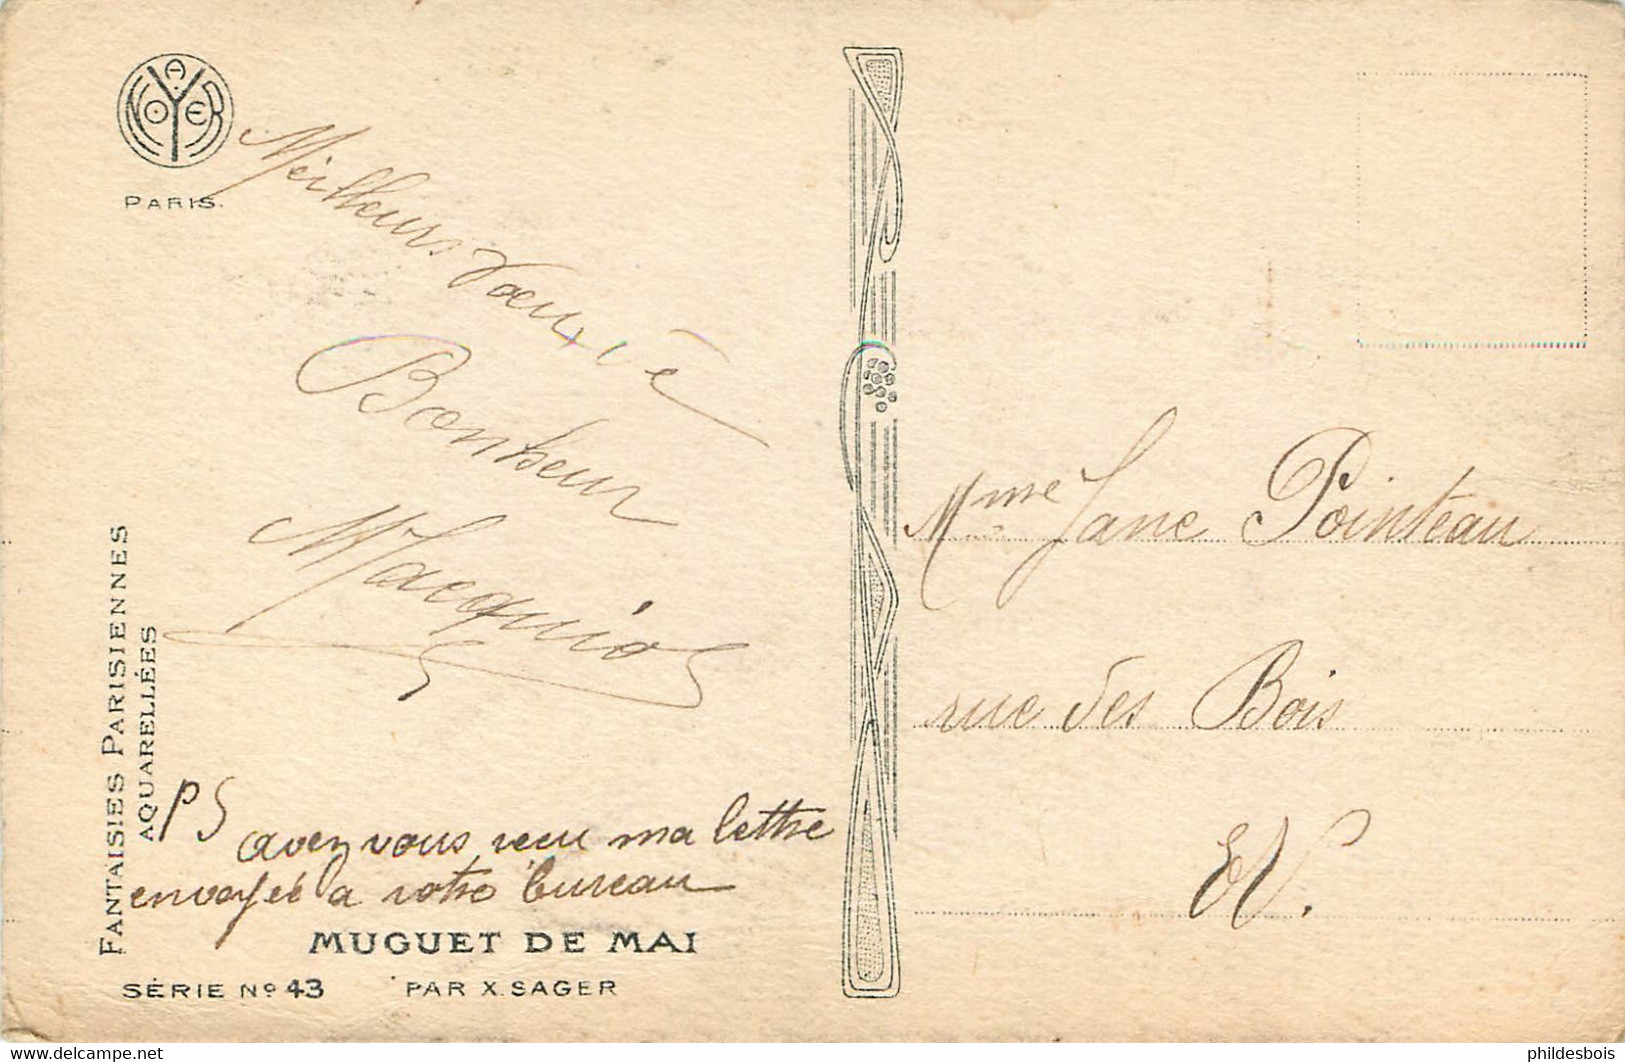 A. NOYER
PARIS.
Meilleurs Voeux é
Bonheur
Macquios
PS avez vous reçu ma lettre
envoyée a votre bureau
FANTAISIES PARISIENNES
AQUARELLÉES
MUGUET DE MAI
SÉRIE Nº 43 PAR X. SAGER
Mme Jane Pointeau
rue des Bois
EV.
delcampe.net
phildesbois